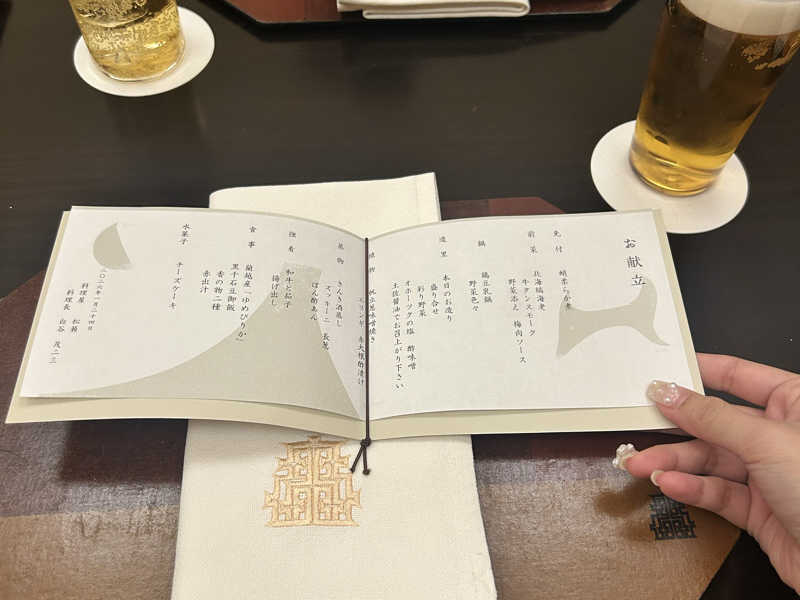 お献立
先付
蛸柔らか煮
前菜
北海縞海老
牛タンスモーク 梅肉ソース
野菜添え
鍋
鶏豆乳鍋
野菜色々
造里
本日のお造り
盛り合せ
彩り野菜
オホーツクの塩 酢味噌
土佐醤油でお召上がり下さい
焼物
味噌焼き
赤大根酢漬け
蒸物
きんき酒蒸し
ズッキーニ 長葱
ぽん酢あん
強肴
和牛と茄子
揚げ出し
食事
蘭越産「ゆめぴりか」
黒千石豆御飯
香の物二種
赤出汁
水菓子
チーズケーキ
二〇二六年一月二十四日
料理屋 松籟
料理長 白谷 茂二三